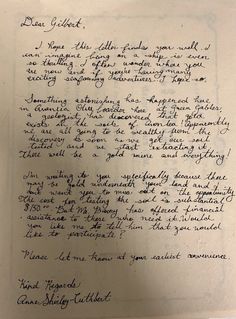 Dear Gilbert,
I hope this letter finds you well. I
can imagine being on a ship is even
so thrilling. I often wonder where you
are now and if you're having many
exciting seafaring adventures. I hope so.
Something astonishing has happened here
in Avonlea. Our boarder here at Green Gables,
a geologist, has discovered that gold
exists in the soils of Avonlea. Apparently
we are all going to be wealthy from this
discovery as soon as we get our soil
tested and start extracting it.
There will be a gold mine and everything!
I'm writing to you specifically because there
may be gold underneath your land and I
don't want you to miss out on the opportunity.
The cost for testing the soil is substantial
$150. But Mr. has offered financial
assistance to those who need it. Would
you like me to tell him that you would
like to participate?
Please let me know at your earliest convenience.
Kind Regards
Anne Shirley-Cuthbert